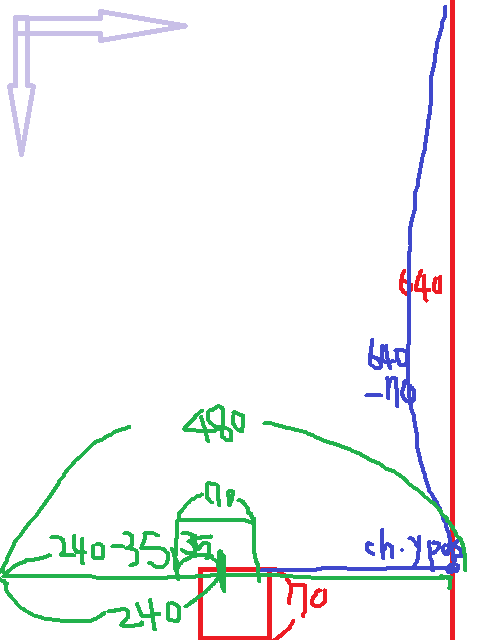 640
640
-70
480
70
240-35
35
ch.ypos
240
70